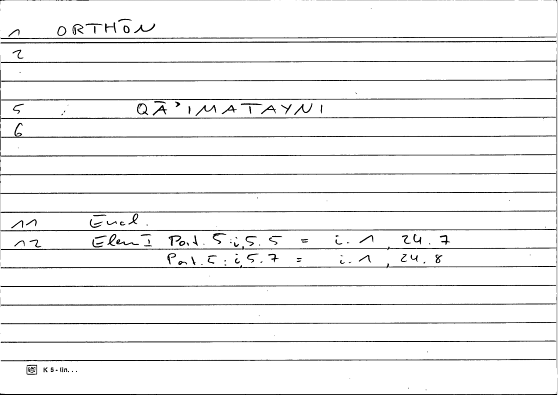 1 ORTHŌN
2
5 QĀ'IMATAYNI
6
11 Eucl.
12 Elem I Post. 5 : i, 5. 5 = i. 1, 24. 7
Post. 5 : i, 5. 7 = i. 1, 24. 8
K 5 - lin. . .